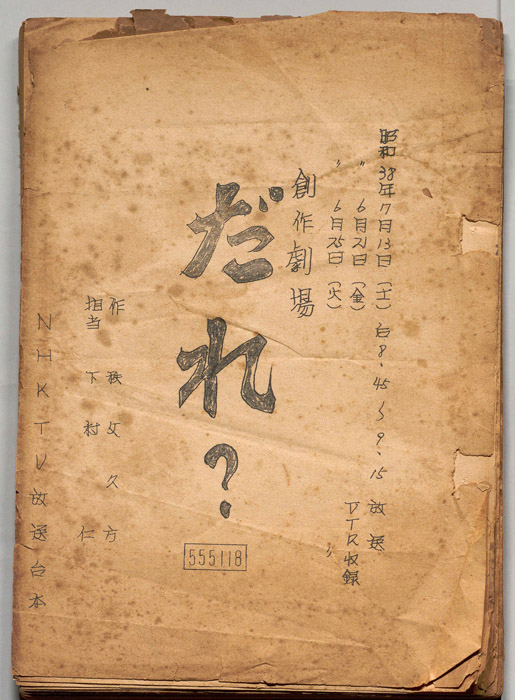 昭和38年7月13日(土) 自8、45〜9、15 放送
〃 6月21日(金) VTR収録
〃 6月25日(火) 〃
創作劇場
だれ?
555118
作 久方
担当 下村 仁
NHKTV放送台本